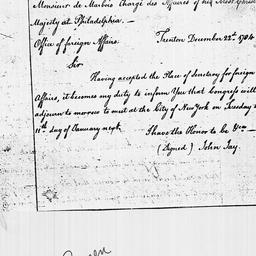 Monsieur de Marbois Chargé des Affaires of his Most Christ
Majesty at Philadelphia. —
Office of foreign Affairs. Trenton December 22d. 1784
Sir
Having accepted the Place of Secretary for foreign
Affairs, it becomes my duty to inform You that Congress will
adjourn to morrow to meet at the City of New York on Tuesday
11th day of January next.
I have the Honor to be &ca —
(Signed) John Jay.